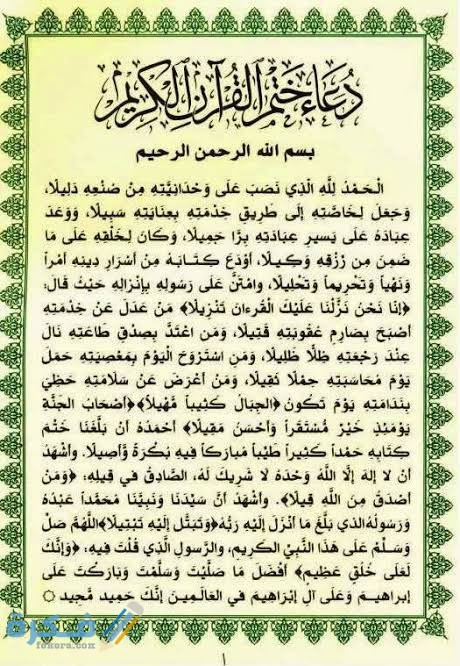 دُعَاءُ خَتْمِ الْقُرْآنِ الْكَرِيْمِ
بسم الله الرحمن الرحيم
الْحَمْدُ لِلَّهِ الَّذِي نَصَبَ عَلَى وَحْدَانِيَّتِهِ مِنْ صُنْعِهِ دَلِيلًا،
وَجَعَلَ لِخَاصَّتِهِ إِلَى طَرِيقِ خِدْمَتِهِ بِعِنَايَتِهِ سَبِيلًا، وَوَعَدَ
عِبَادَهُ عَلَى يَسِيرِ عِبَادَتِهِ بِرًّا جَمِيلًا، وَكَانَ لِخَلْقِهِ عَلَى مَا
ضَمِنَ مِنْ رِزْقِهِ وَكِيلًا، أَوْدَعَ كِتَابَهُ مِنْ أَسْرَارِ دِينِهِ أَمْراً
وَنَهْياً وَتَحْرِيماً وَتَحْلِيلًا، وامْتَنَّ عَلَى رَسُولِهِ بِإِنْزَالِهِ حَيْثُ قَالَ:
﴿إِنَّا نَحْنُ نَزَّلْنَا عَلَيْكَ الْقُرْءَانَ تَنْزِيلًا﴾ مَنْ عَدَلَ عَنْ خِدْمَتِهِ
أَصْبَحَ بِصَارِمِ عُقُوبَتِهِ قَتِيلًا، وَمَنِ اعْتَدَّ بِصِدْقِ طَاعَتِهِ نَالَ
عِنْدَ رَجْعَتِهِ ظِلًّا ظَلِيلًا، وَمَنِ اسْتَرْوَحَ الْيَوْمَ بِمَعْصِيَتِهِ حَمَلَ
يَوْمَ مُحَاسَبَتِهِ حِمْلًا ثَقِيلًا، وَمَنْ أَعْرَضَ عَنْ سَلَامَتِهِ حَظِيَ
بِنَدَامَتِهِ يَوْمَ تَكُونُ ﴿الْجِبَالُ كَثِيباً مَّهِيلاً﴾ ﴿أَصْحَابُ الْجَنَّةِ
يَوْمَئِذٍ خَيْرٌ مُسْتَقَراً وَأَحْسَنُ مَقِيلًا﴾ أَحْمَدُهُ أَنْ بَلَّغَنَا خَتْمَ
كِتَابِهِ حَمْداً كَثِيراً طَيِّباً مُبَارَكاً فِيهِ بُكْرَةً وَأَصِيلًا. وأَشْهَدُ
أَنْ لا إِلَهَ إِلَّا اللَّهُ وَحْدَهُ لا شَرِيكَ لَهُ، الصَّادِقُ فِي قِيلِهِ: ﴿وَمَنْ
أَصْدَقُ مِنَ اللَّهِ قِيلًا﴾. وأَشْهَدُ أَنَّ سَيِّدَنَا وَنَبِيَّنَا مُحَمَّداً عَبْدُهُ
وَرَسُولُهُ الذي بَلَّغَ مَا أُنْزِلَ إِلَيْهِ رَبُّهُ ﴿وَتَبَتَّلْ إِلَيْهِ تَبْتِيلًا﴾ اللَّهُمَّ صَلِّ
وَسَلِّمْ عَلَى هَذَا النَّبِيِّ الكريم، والرَّسولِ الَّذِي قُلْتَ فِيهِ: ﴿وَإِنَّكَ
لَعَلَى خُلُقٍ عَظِيمٍ﴾ أَفْضَلَ مَا صَلَّيْتَ وَسَلَّمْتَ وَبَارَكْتَ عَلَى
إبراهيمَ وَعَلَى آلِ إِبْرَاهِيمَ في العَالَمِينَ إِنَّكَ حَمِيد مَجِيد
فكرة
fekera.com
١